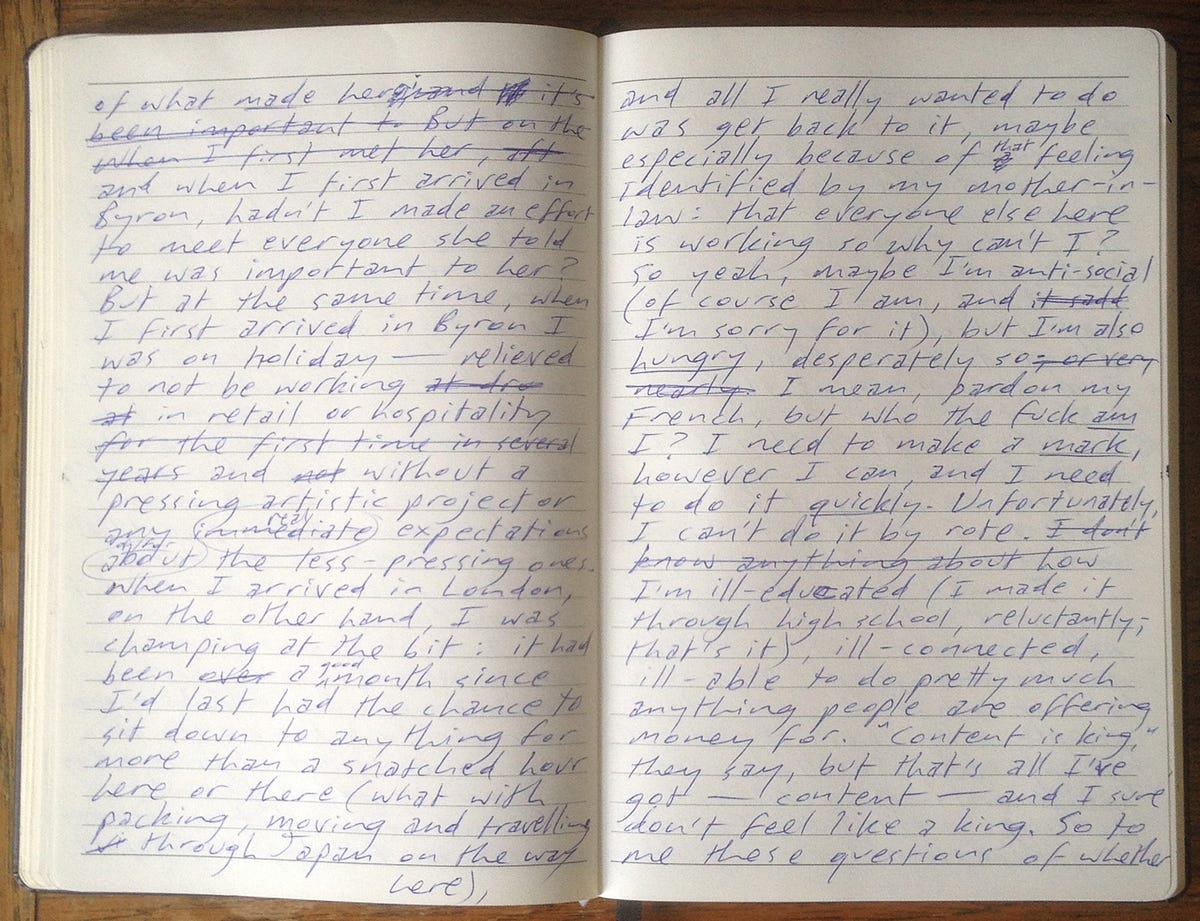 of what made her grand it's
been important to But on the
when I first met her, aft
and when I first arrived in
Byron, hadn't I made an effort
to meet everyone she told
me was important to her?
But at the same time, when
I first arrived in Byron I
was on holiday — relieved
to not be working at dro
at in retail or hospitality
for the first time in several
years and not without a
pressing artistic project or
any immediate real expectations
about the less-pressing ones.
When I arrived in London,
on the other hand, I was
champing at the bit: it had
been over a good month since
I'd last had the chance to
sit down to anything for
more than a snatched hour
here or there (what with
packing, moving and travelling
through Japan on the way
here),
and all I really wanted to do
was get back to it, maybe
especially because of that feeling
identified by my mother-in-
law: that everyone else here
is working so why can't I?
So yeah, maybe I'm anti-social
(of course I am, and it sadd
I'm sorry for it), but I'm also
hungry, desperately so, or very
nearly. I mean, pardon my
French, but who the fuck am
I? I need to make a mark,
however I can, and I need
to do it quickly. Unfortunately,
I can't do it by rote. I don't
know anything about how
I'm ill-educated (I made it
through high school, reluctantly;
that's it), ill-connected,
ill-able to do pretty much
anything people are offering
money for. "Content is king,"
they say, but that's all I've
got — content — and I sure
don't feel like a king. So to
me these questions of whether